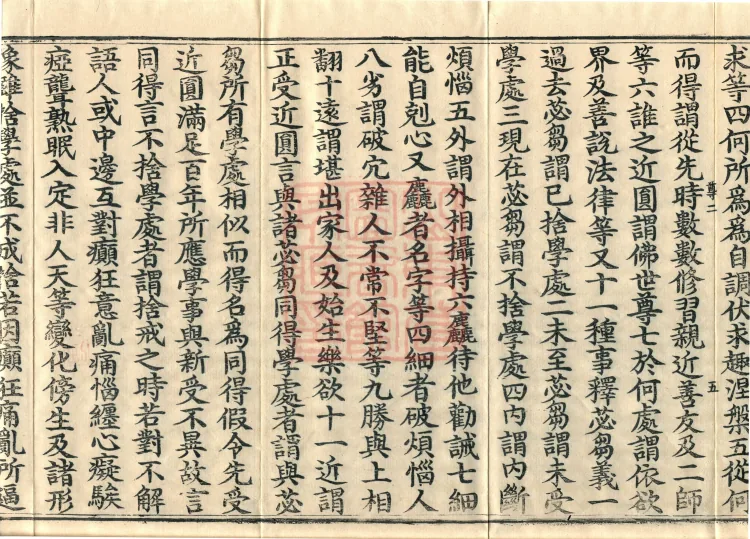 求等四何所爲爲自調伏求趣涅槃五從何
尊二 五
而得謂從先時數數修習親近善友及二師
等六誰之近圓謂佛世尊七於何處謂依欲
界及善說法律等又十一種事釋苾芻義一
過去苾芻謂已捨學處二未至苾芻謂未受
學處三現在苾芻謂不捨學處四內謂內斷
煩惱五外謂外相攝持六麤待他勸誡七細
能自剋心又麤者名字等四細者破煩惱人
八劣謂破宂雜人不常不堅等九勝與上相
翻十遠謂堪出家人及始生樂欲十一近謂
正受近圓言與諸苾芻同得學處者謂與苾
芻所有學處相似而得名爲同得假令先受
近圓滿足百年所應學事與新受不異故言
同得言不捨學處者謂捨戒之時若對不解
語人或中邊互對癲狂意亂痛惱纏心癡騃
瘂聾熟眠入定非人天等變化傍生及諸形
像雖捨學處並不成捨若因癲狂痛亂所逼